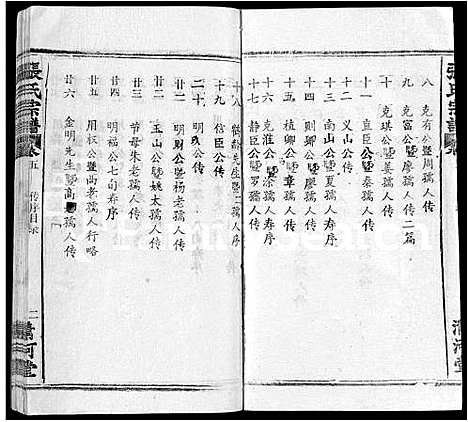 張氏宗譜
八 克有公暨周孺人传
九 克富公暨廖孺人传二篇
十 克琪公暨姜孺人传
十一 直臣公暨秦孺人传
十二 义山公传
十三 南山公暨廖孺人寿序
十四 则卿公暨廖孺人传
十五 植卿公暨章孺人传
十六 克淮公暨涂孺人寿序
十七 静臣公暨罗孺人传
十八 先生暨二孺人序
十九 信臣公传
二十 明 公传
廿一 明财公暨杨老孺人传
廿二 玉山公暨姚太孺人传
廿三 节母朱老孺人传
廿四 明福公七旬寿序
廿五 用枨公暨高老孺人行略
廿六 金明先生暨高 孺人传
張氏宗譜 卷五 传序目录 二 清河堂
清河堂